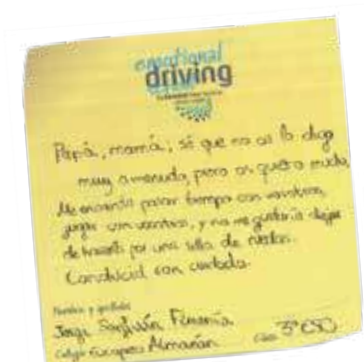 emotional
driving
Papá, mamá, sé que no os lo digo
muy a menudo, pero os quiero mucho.
Me encanta pasar tiempo con vosotros,
jugar con vosotros, y no me gustaría dejar
de hacerlo por una silla de ruedas.
Conducid con cuidado.
Nombre y apellidos
Jorge
Colegio Europeo Almazán
3º ESO